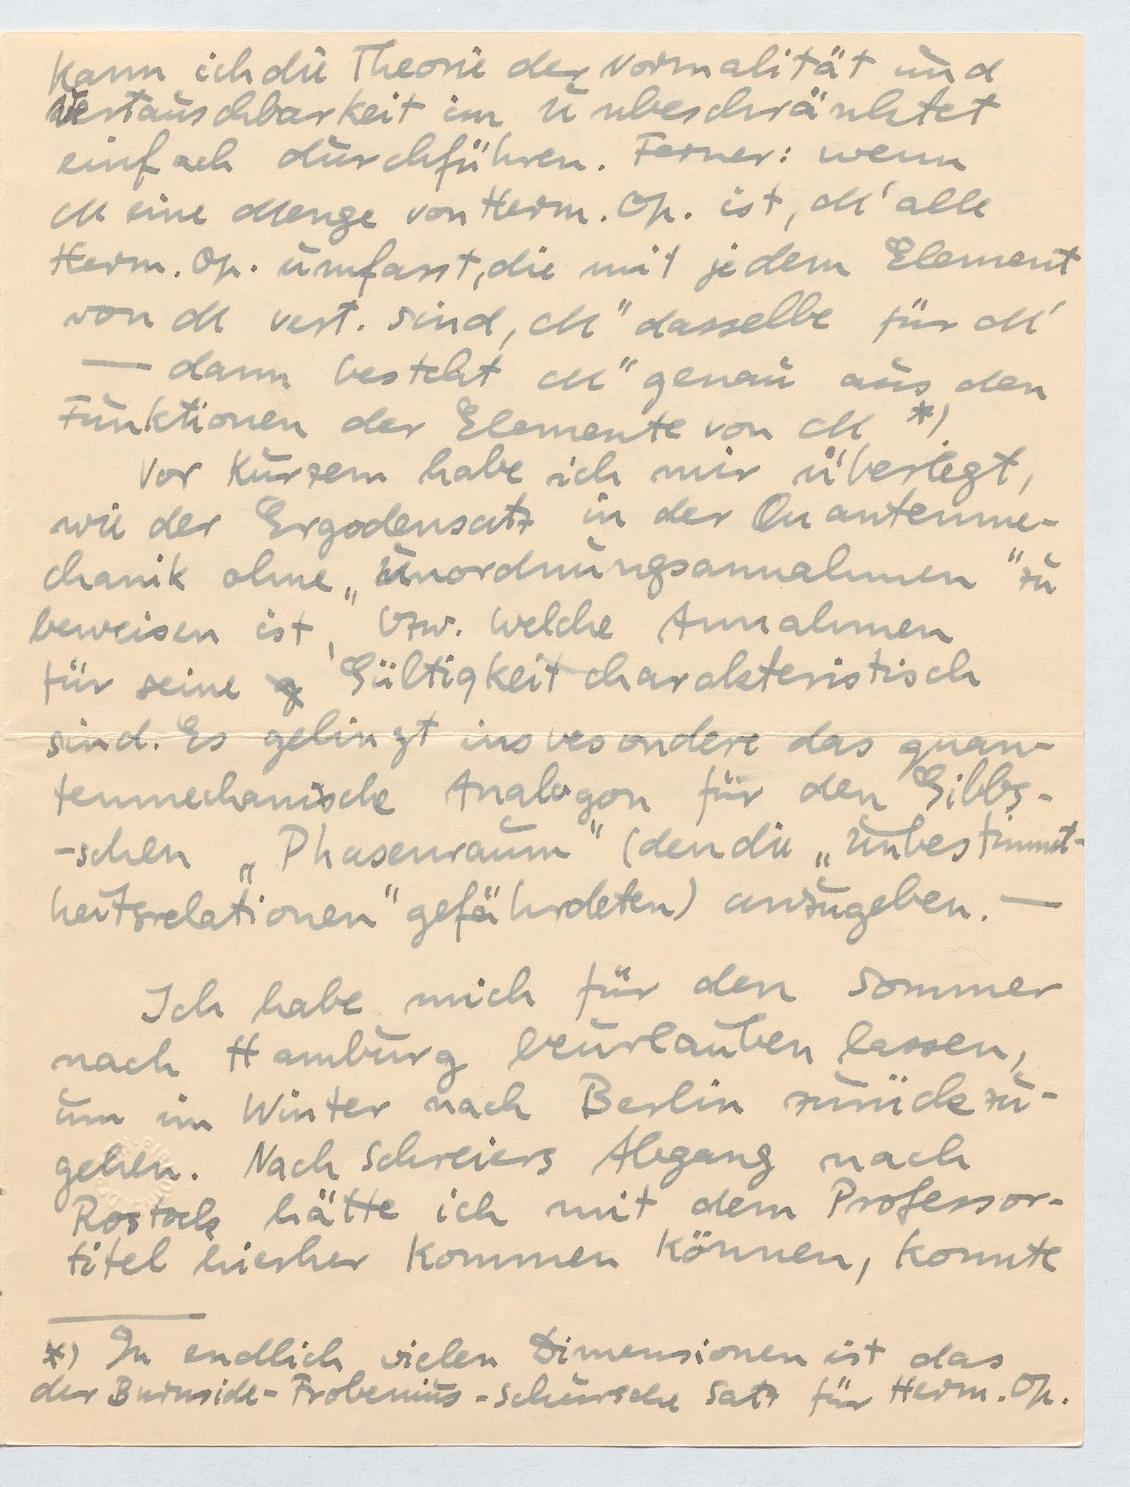 kann ich die Theorie der Normalität und
Vertauschbarkeit im Unbeschränktet
einfach durchführen. Ferner: wenn
M eine Menge von Herm. Op. ist, M' alle
Herm. Op. umfasst, die mit jedem Element
von M vert. sind, M" dasselbe für M'
— dann besteht M" genau aus den
Funktionen der Elemente von M *)
Vor Kurzem habe ich mir überlegt,
wie der Ergodensatz in der Quantenme-
chanik ohne „Unordnungsannahmen" zu
beweisen ist, bzw. welche Annahmen
für seine Gültigkeit charakteristisch
sind. Es gelingt insbesondere das quan-
tenmechanische Analogon für den Gibbs-
-schen „Phasenraum" (den die „Unbestimmt-
heitsrelationen" gefährdeten) anzugeben. —
Ich habe mich für den Sommer
nach Hamburg beurlauben lassen,
um im Winter nach Berlin zurückzu-
gehen. Nach Schreiers Abgang nach
Rostock hätte ich mit dem Professor-
titel hieher kommen können, konnte
*) In endlich vielen Dimensionen ist das
der Burnside-Frobenius-Schursche Satz für Herm. Op.